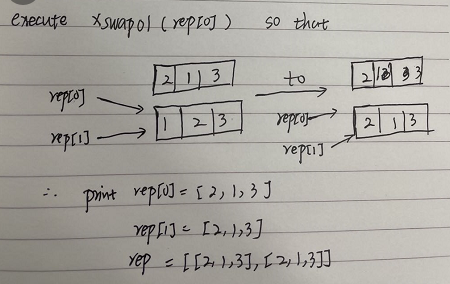 execute xswap01(rep[0]) so that
2 1 3 to
rep[0]
1 2 3 rep[0] 2 1 3
rep[1] rep[1]
∴ print rep[0] = [2,1,3]
rep[1] = [2,1,3]
rep = [[2,1,3],[2,1,3]]